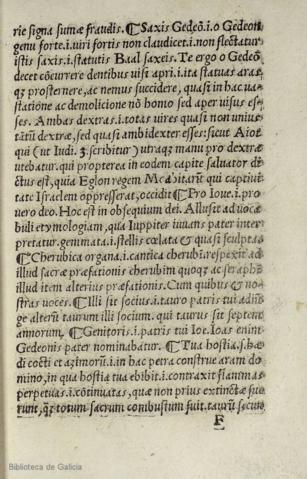 rie signa sumæ fraudis. ¶ Saxis Gedeō.i.o Gedeon
genu forte.i.viri fortis non claudicet.i.non flectatur
istis saxis.i.statutis Baal saxeis. Te ergo o Gedeō
decet cōcurrere dentibus uisi apri.i.ita statuas aras
qꝫ prosternere, ac nemus succidere, quasi in hac va-
statione ac demolicione nō homo sed aper uisus es-
ses. Ambas dextras.i.totas uires quasi non unius
tātū dextræ, sed quasi ambidexter esses: sicut Aiot
qui (ut Iudi. 3. scribitur) utraqꝫ manu pro dextra
utebatur. qui propterea in codem capite saluator di
ctus est, quia Eglon regem Moabitarū qui captiui
tate Israelem oppresserat, occidit ¶ Pro Ioue.i.pro
uero deo. Hoc est in obsequium dei. Allusit ad uoca
buli etymologiam, qua Iuppiter iuuans pater inter
pretatur. gemmata.i.stellis cœlata & quasi sculpta
¶ Cherubica organa.i.cantica cherubi. respexit ad
illud sacræ præfationis cherubim quoqꝫ ac seraphi
illud item alterius præfationis. Cum quibus & no-
stras uoces. ¶ Illi sit socius.i.tauro patris tui adiū
ge alterū taurum illi socium. qui taurus sit septem
annorum. ¶ Genitoris.i.patris tui Ioe. Ioas enim
Gedeonis pater nominabatur. ¶ Tua hostia.s.hæ
di cocti et azimorū.i.in hac petra construe aram do
mino, in qua hostia tua ebibit.i.contraxit flammas
perpetuas.i.cōtinuatas, quæ non prius extinctæ fue
runt, qꝫ totum sacrum combustum fuit. taurū secun
F
Biblioteca de Galicia